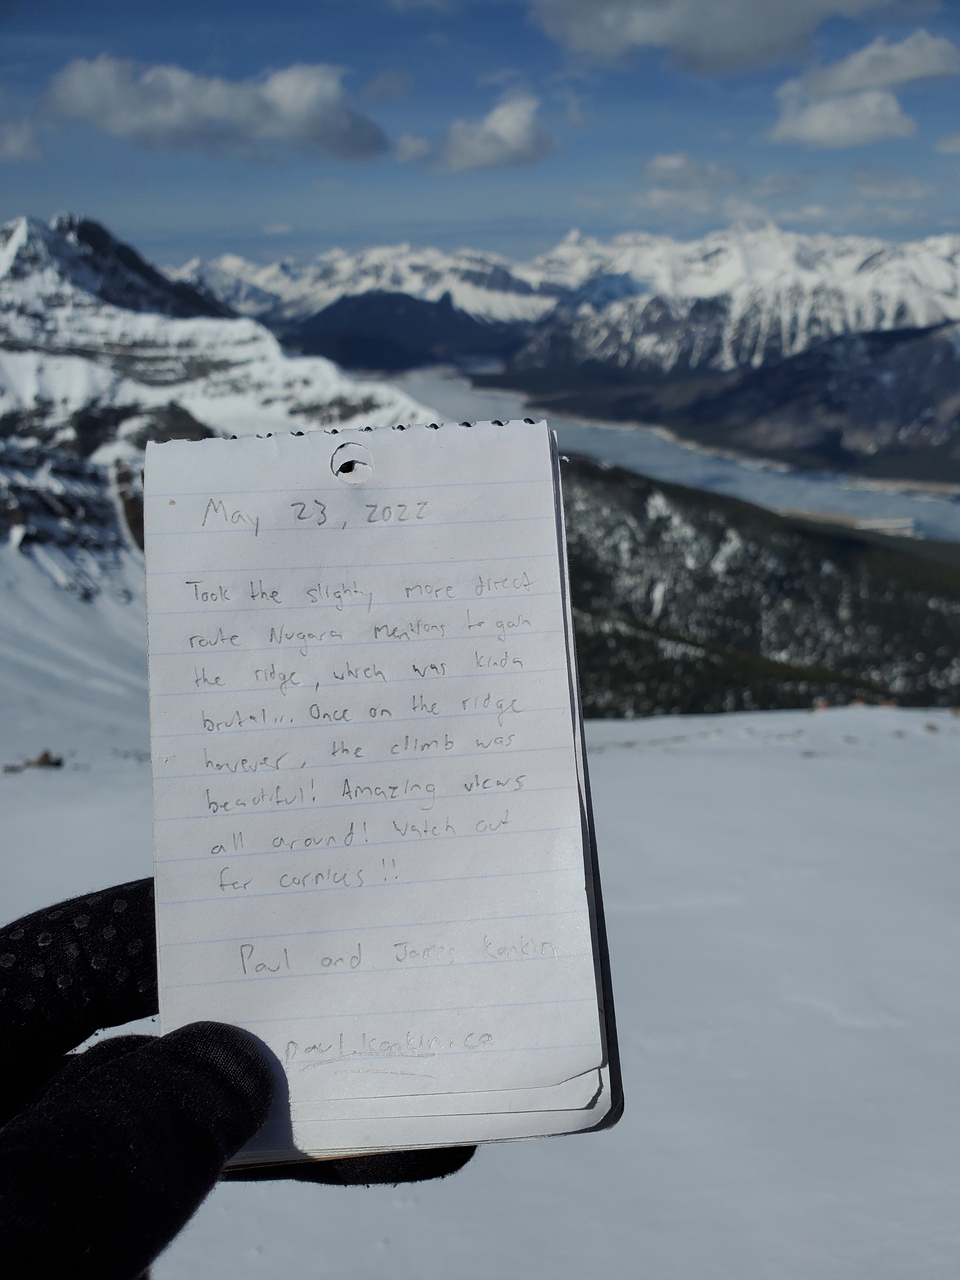 May 23, 2022
Took the slight, more direct
route Nugara mentions to gain
the ridge, which was kinda
brutal... Once on the ridge
however, the climb was
beautiful! Amazing views
all around! Watch out
for cornices!!
Paul and James Konkin
paul.konkin.ca